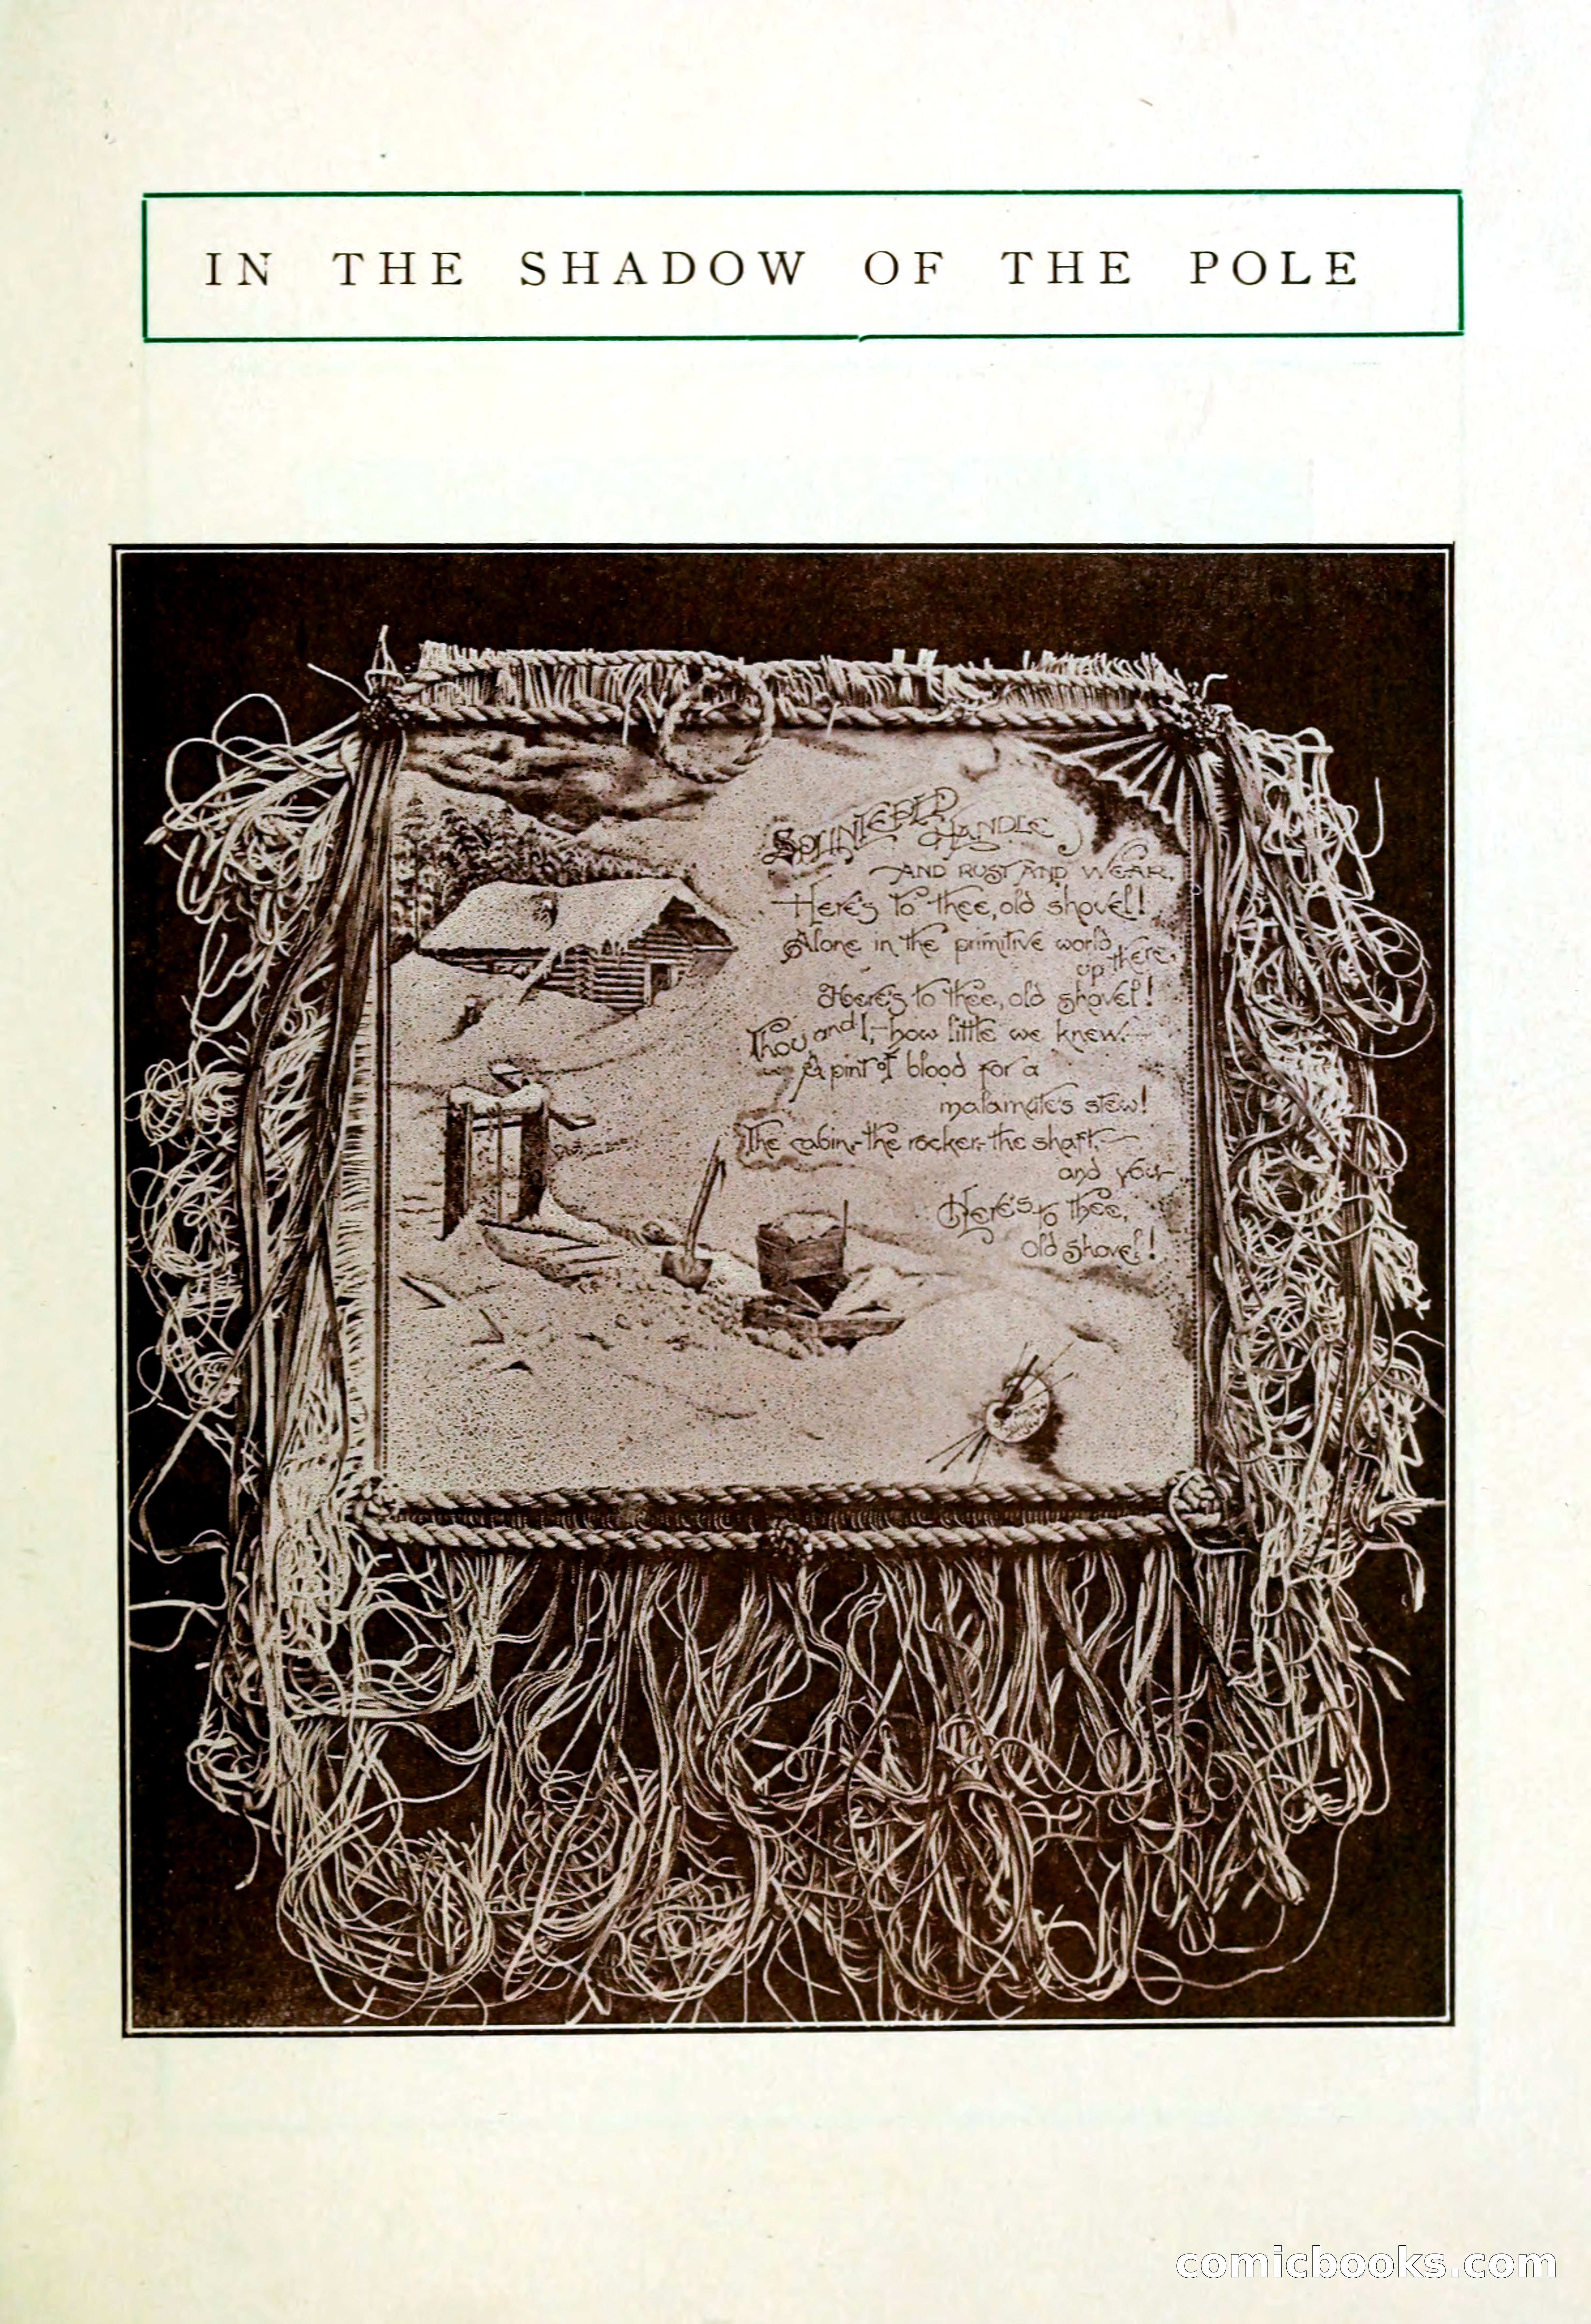 IN THE SHADOW OF THE POLE
SPLINTERED HANDLE
AND RUST AND WEAR,
Here's to thee, old shovel!
Alone in the primitive world
up there,
Here's to thee, old shovel!
Thou and I,- how little we knew.-
A pint of blood for a
malamute's stew!
The cabin,-the rocker,-the shaft,-
and you-
Here's to thee,
old shovel!
comicbooks.com